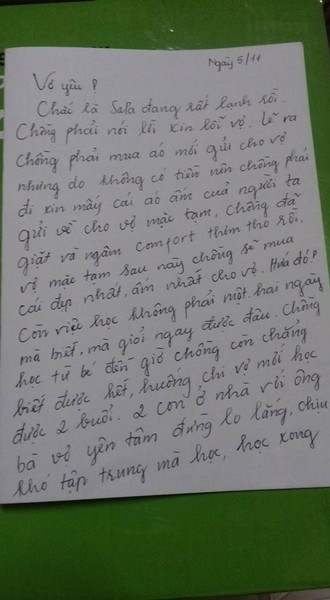 Ngày 5/11
Vợ yêu !
Chắc là Sala đang rất lạnh rồi.
Chồng phải nói lời xin lỗi vợ. Lẽ ra
chồng phải mua áo mới gửi cho vợ
nhưng do không có tiền nên chồng phải
đi xin mấy cái áo ấm của người ta
gửi về cho vợ mặc tạm, chồng đã
giặt và ngâm comfort thơm tho rồi,
vợ mặc tạm sau này chồng sẽ mua
cái đẹp nhất, ấm nhất cho vợ. Hứa đó!
Còn việc học không phải một hai ngày
mà biết, mà giỏi ngay được đâu. Chồng
học từ bé đến giờ chồng còn chẳng
biết được hết, huống chi vợ mới học
được 2 buổi. 2 con ở nhà với ông
bà vợ yên tâm đừng lo lắng, chịu
khó tập trung mà học, học xong